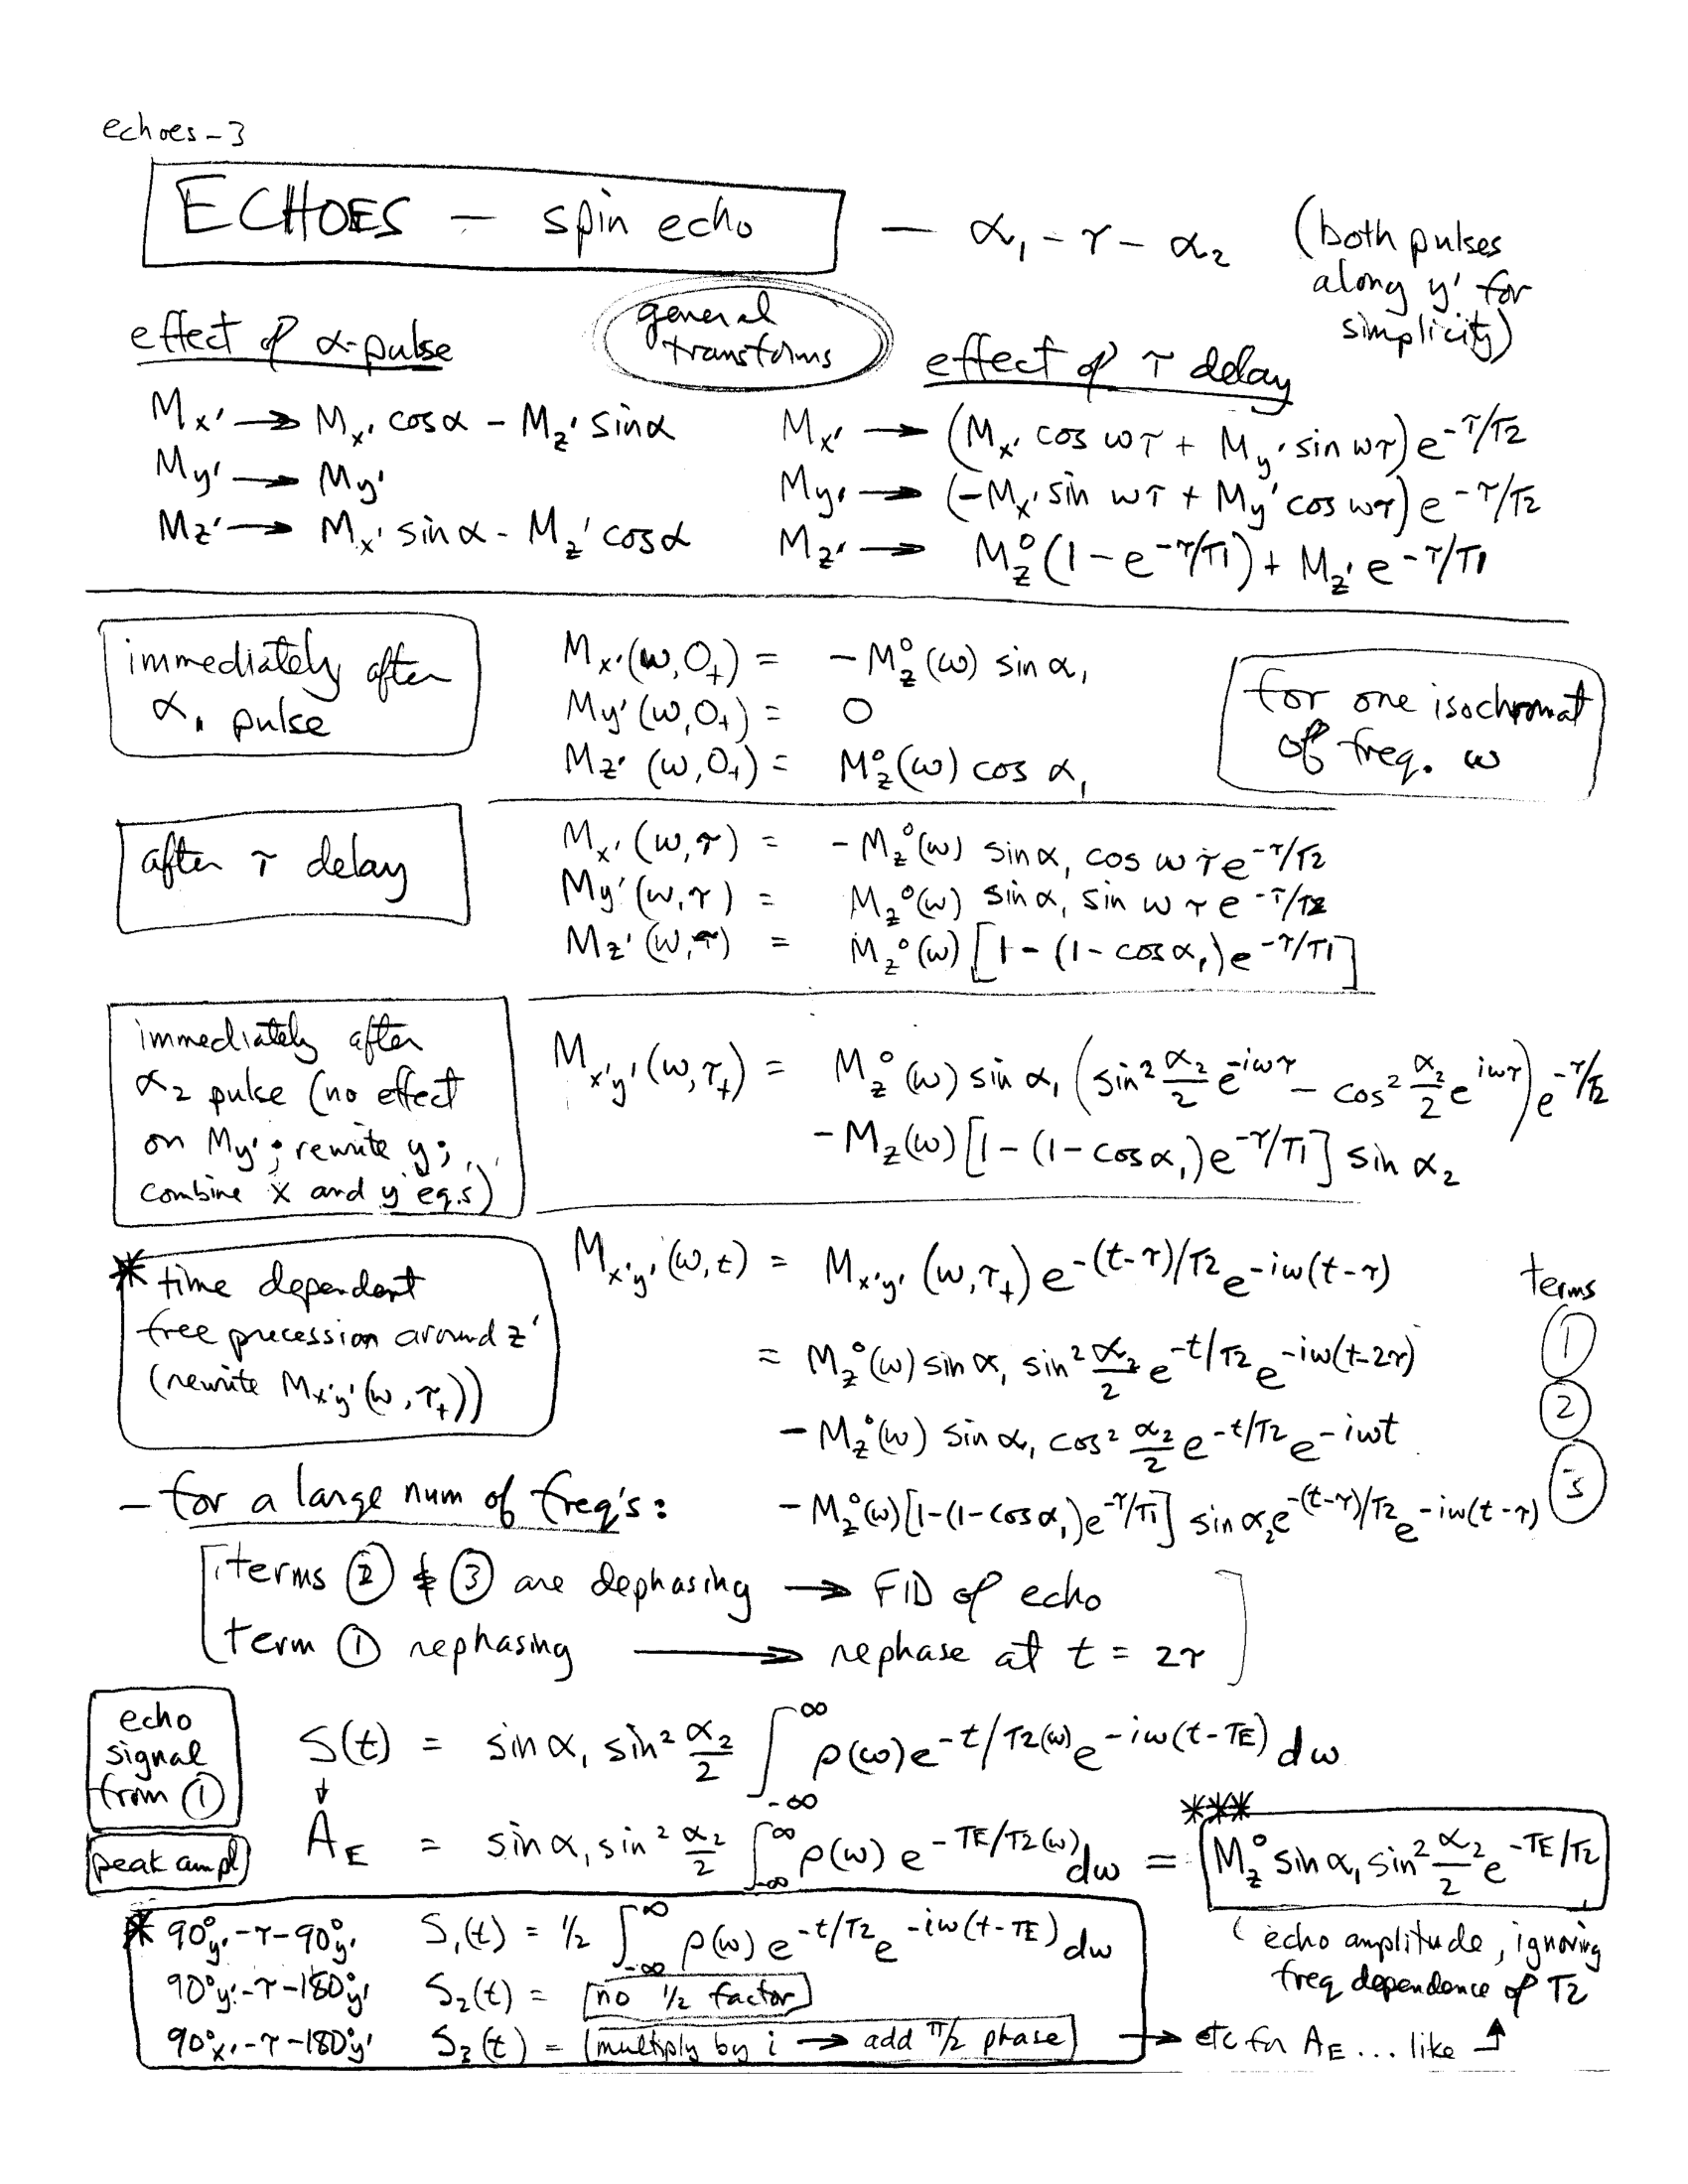 echoes-3
ECHOES — spin echo — α₁ - τ - α₂ (both pulses
along y' for
simplicity)
general
transforms
effect of α-pulse
effect of τ delay
Mx' → Mx' cosα - Mz' sinα
Mx' → (Mx' cos ωτ + My' sin ωτ) e^-τ/T2
My' → My'
My' → (-Mx' sin ωτ + My' cos ωτ) e^-τ/T2
Mz' → Mx' sinα - Mz' cosα
Mz' → Mz° (1 - e^-τ/T1) + Mz' e^-τ/T1
immediately after
α₁ pulse
Mx'(ω,0₊) = -Mz°(ω) sin α₁
My'(ω,0₊) = 0
Mz'(ω,0₊) = Mz°(ω) cos α₁
for one isochromat
of freq. ω
after τ delay
Mx'(ω,τ) = -Mz°(ω) sinα₁ cos ωτ e^-τ/T2
My'(ω,τ) = Mz°(ω) sinα₁ sin ωτ e^-τ/T2
Mz'(ω,τ) = Mz°(ω) [1 - (1 - cosα₁) e^-τ/T1]
immediately after
α₂ pulse (no effect
on My'; rewrite y';
combine x' and y' eq.s)
Mx'y'(ω,τ₊) = Mz°(ω) sin α₁ (sin² α₂/2 e^-iωτ - cos² α₂/2 e^iωτ) e^-τ/T2
- Mz(ω) [1 - (1 - cosα₁) e^-τ/T1] sin α₂
* time dependent
free precession around z'
(rewrite Mx'y'(ω,τ₊))
Mx'y'(ω,t) = Mx'y'(ω,τ₊) e^-(t-τ)/T2 e^-iω(t-τ)
terms
= Mz°(ω) sin α₁ sin² α₂/2 e^-t/T2 e^-iω(t-2τ) ①
- Mz°(ω) sin α₁ cos² α₂/2 e^-t/T2 e^-iωt ②
- Mz°(ω) [1-(1-cosα₁) e^-τ/T1] sin α₂ e^-(t-τ)/T2 e^-iω(t-τ) ③
- for a large num of freq's:
terms ② & ③ are dephasing → FID of echo
term ① rephasing → rephase at t = 2τ
echo
signal
from ①
S(t) = sin α₁ sin² α₂/2 ∫_-∞^∞ ρ(ω) e^-t/T2(ω) e^-iω(t-TE) dω
peak ampl
↓
A_E = sin α₁ sin² α₂/2 ∫_-∞^∞ ρ(ω) e^-TE/T2(ω) dω = Mz° sin α₁ sin² α₂/2 e^-TE/T2
***
* 90°y' - τ - 90°y' S₁(t) = 1/2 ∫_-∞^∞ ρ(ω) e^-t/T2 e^-iω(t-TE) dω
90°y' - τ - 180°y' S₂(t) = [no 1/2 factor]
90°x' - τ - 180°y' S₃(t) = [multiply by i → add π/2 phase] → etc for A_E ... like ↑
(echo amplitude, ignoring
freq dependence of T2